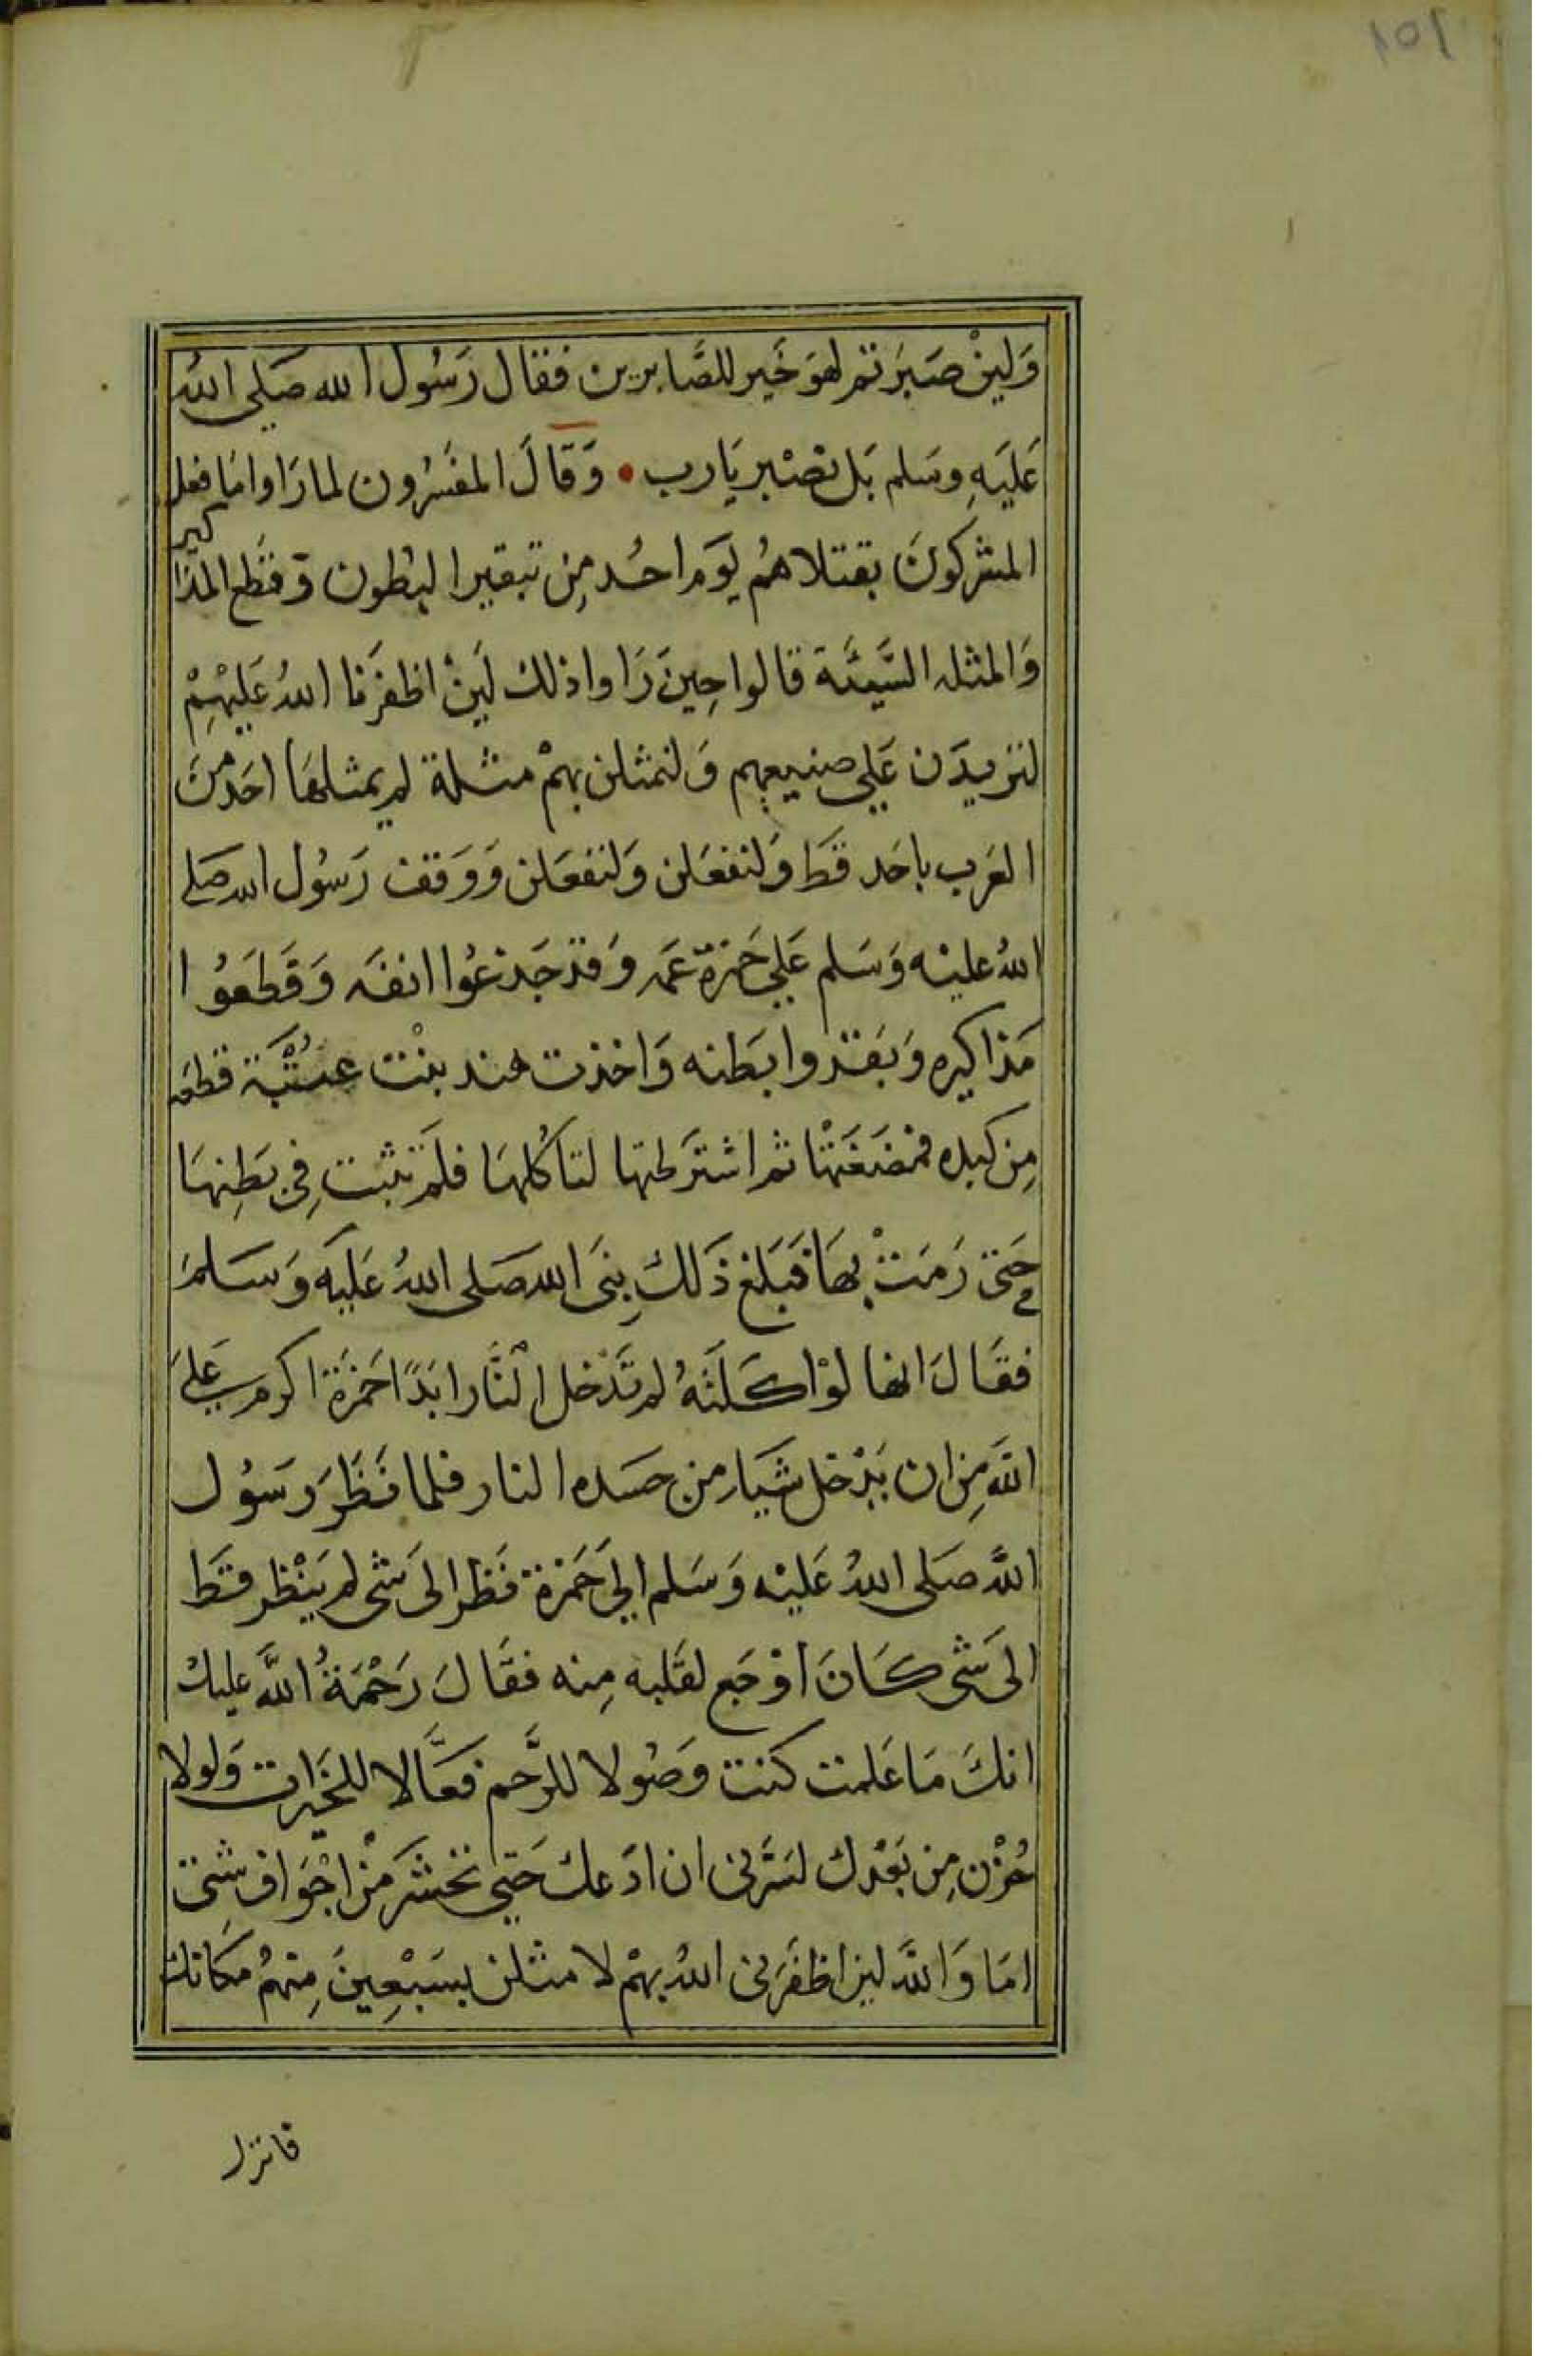 ١٥١
وَلَينْ صَبَرتم لهوَ خَير للصَّابرين فقال رَسُول الله صَلى اللهُ
عَليَهِ وسَلم بَل نصْبر يَارب • وَقَالَ المفسّرُون لما رَاوا مَا فعل
المشركونَ بقتلاهُم يَوم احُد مِن تبقير البُطون وقطَع المذاكير
وَالمثله السَّيئَة قالوا حِينَ رَاوا ذلك لَينْ اظفَرَنا اللهُ عَليْهِمْ
لنزيدَن عَلى صنيعهم وَلنمثلن بهمْ مثلة لم يمثلهَا احَد مِنَ
العَرب باحَد قَط وَلنفعَلن وَلنفعَلن وَوَقف رَسُول الله صَلى
اللهُ عليْه وَسَلم عَلى حَمزة عَمه وَقد جَدعُوا انفَه وَقَطعَوُا
مَذاكيره وَبَقروا بَطنه وَاخذت هند بنْت عتْبَة قطعَه
مِن كبده فمضَغَتْها ثم اشترطتها لتاكُلهَا فلَم تثبت فِى بَطِنهَا
حَتى رَمَتْ بهَا فَبَلغ ذَلكَ نبِىَ الله صَلى اللهُ عَليَه وَسَلمَ
فقَالَ انها لوْ اكَلَتْهُ لم تَدْخل النَّار ابَدًا حَمزَة اكرم عَلىَ
اللهَ مِن ان يَدْخل شَيا من جسَده النار فلما نَظَرَ رَسُول
اللهَّ صَلى اللهُ عَليْه وَسَلم الىَ حَمزة نَظر الى شَى لم يَنْظر قَط
الى شَى كَانَ اوْجَع لقَلبه مِنه فقَالَ رَحْمَةُ اللهَّ عليكْ
انكَ مَا عَلمت كنت وَصُولا للرَّحم فعَّالا للخيرَات وَلولا
حُزْن مِن بَعْدك لسَرَّنى ان ادَعك حَتى تحَشرَ مِنْ اجْوَاف شِتى
امَا وَاللهَّ لين اظفَرَنى اللهُ بهمْ لا مثلن بسَبْعِينَ مِنهُم مَكانك
فانزل